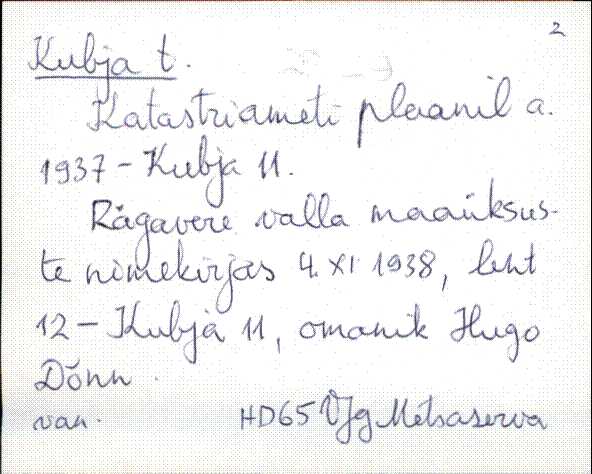 2
Kubja t.
Katastriameti plaanil a.
1937 - Kubja 11.
Rägavere valla maaüksus-
te nimekirjas 4. XI 1938, leht
12 - Kubja 11, omanik Hugo
Dönn.
van. HD65 VJg Metsaserva